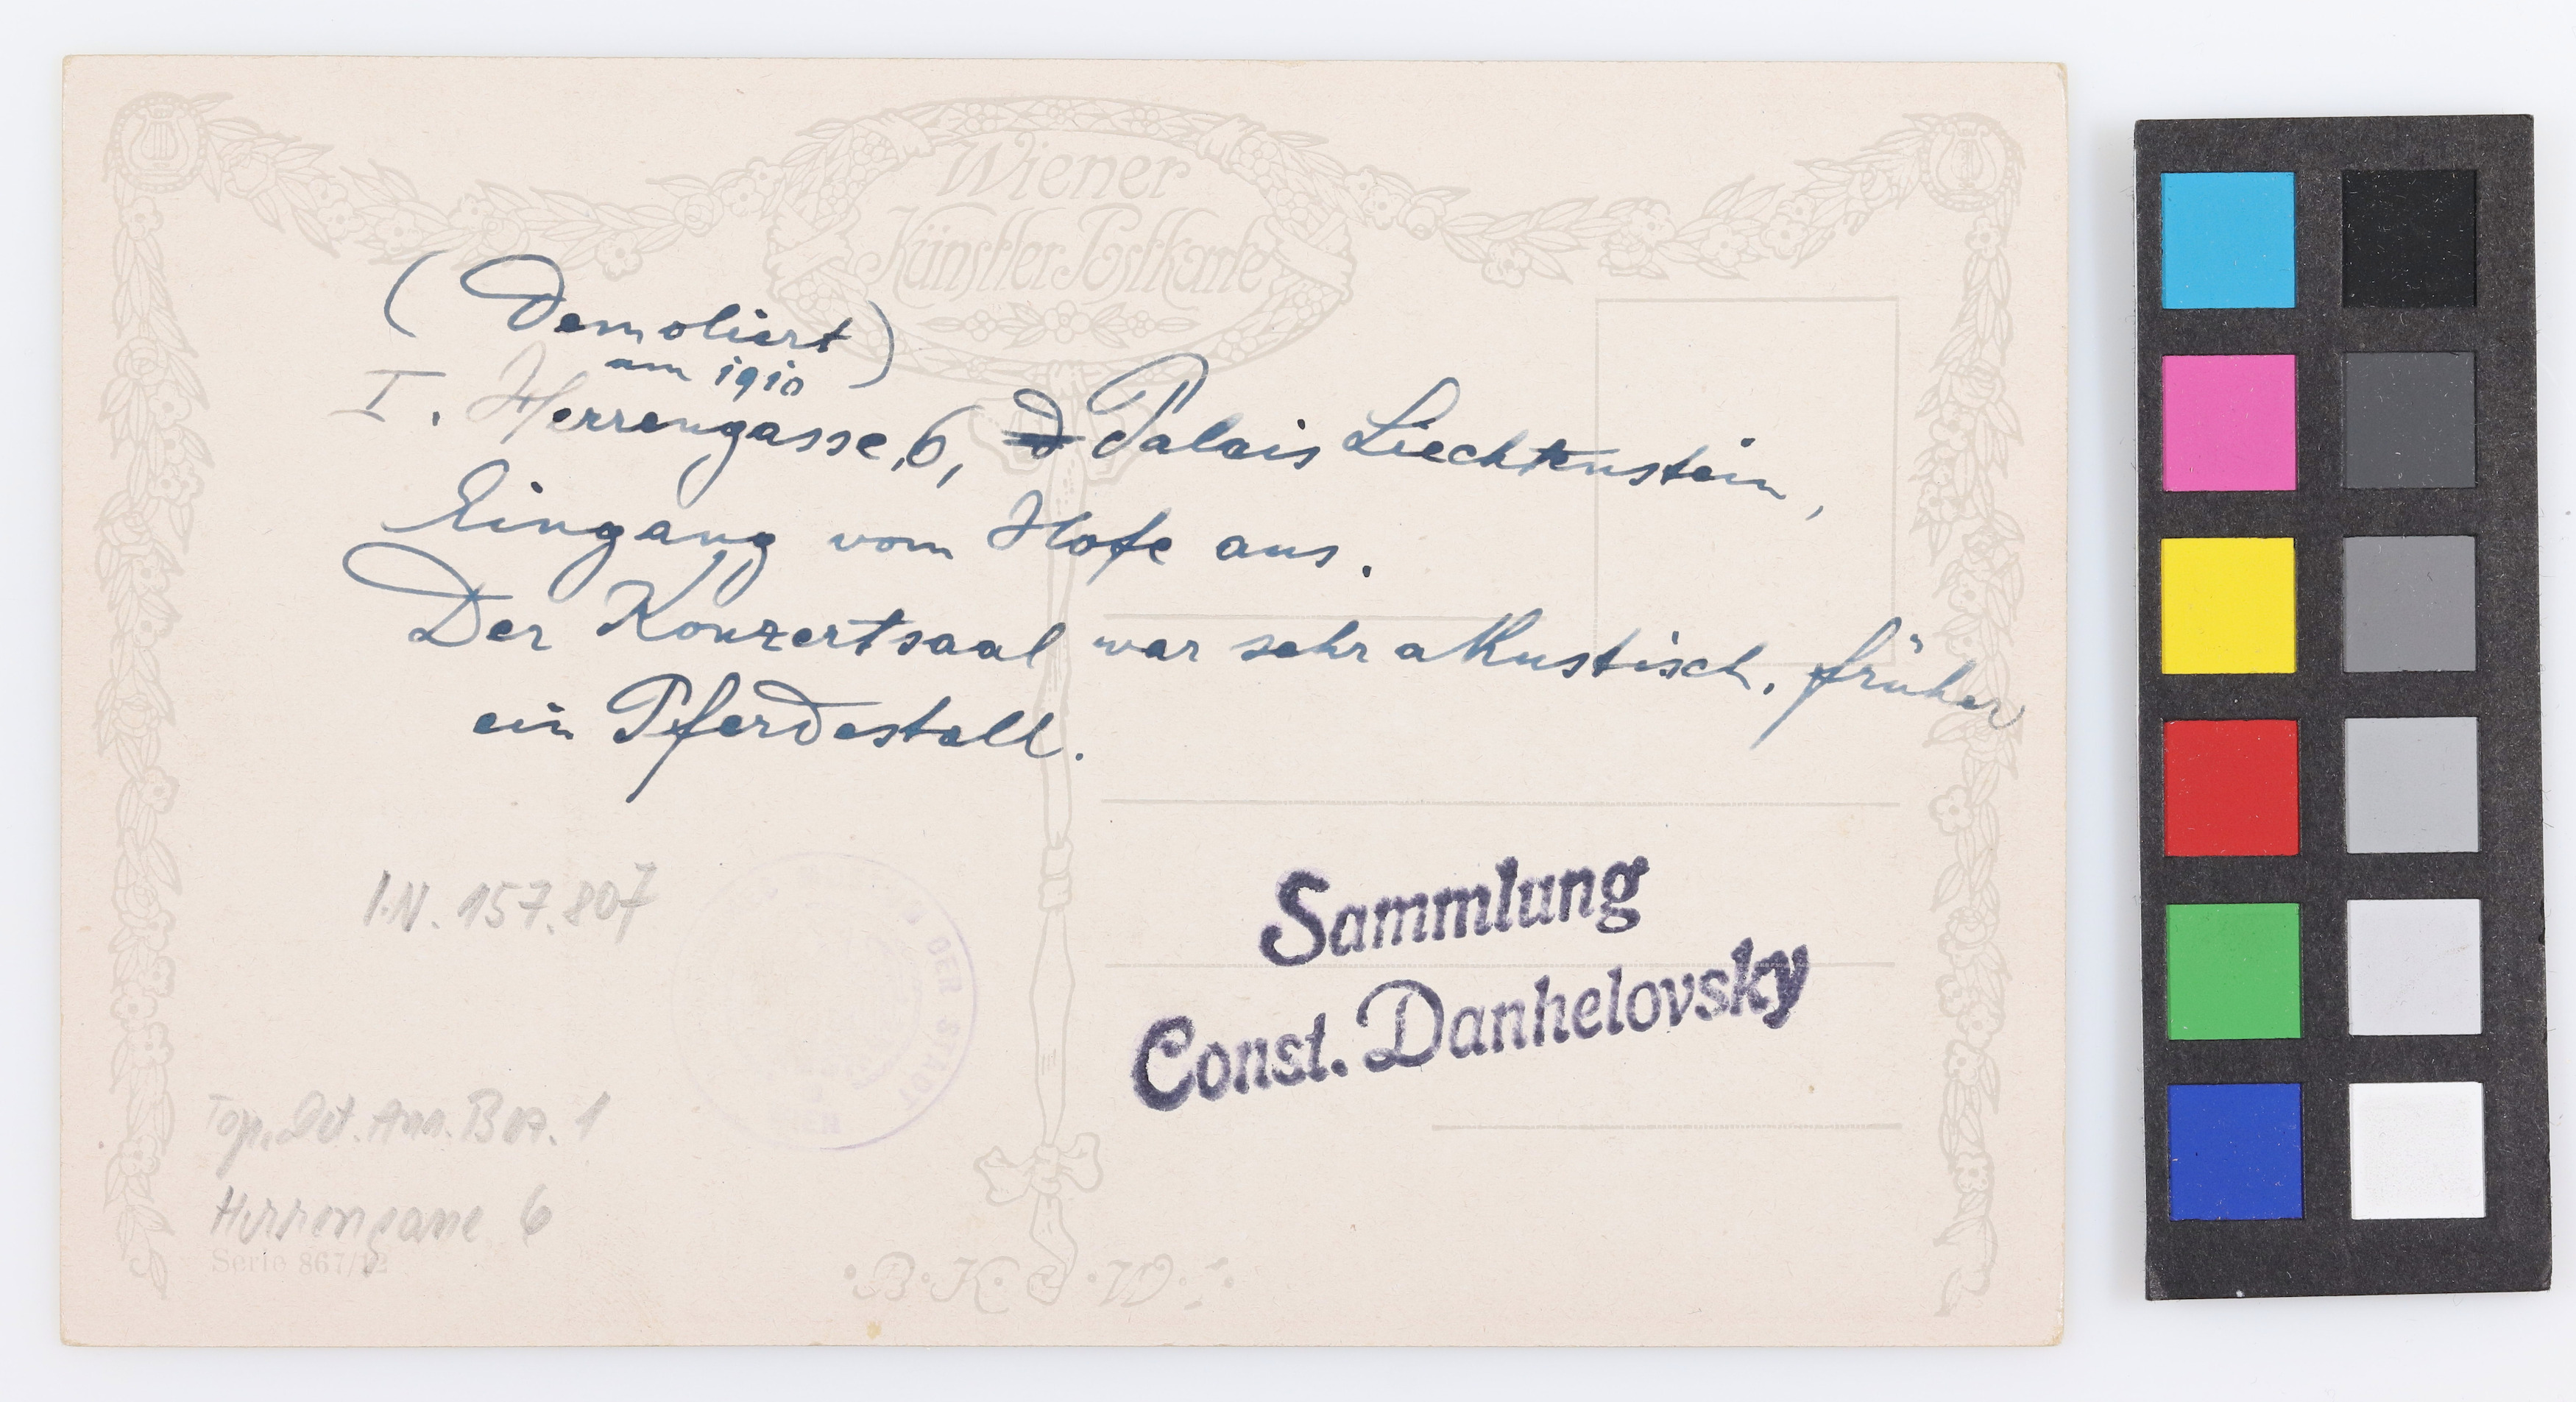 Wiener
Künstler Postkarte
(Demoliert)
am 1910
I. Herrengasse, 6, Palais Liechtenstein,
Eingang vom Hofe aus.
Der Konzertsaal war sehr akustisch, früher
ein Pferdestall.
I.N. 157.807
DER STADT
Sammlung
Const. Danhelovsky
Top. Bez. 1
Herrengasse 6
Serie 867/12
B.K.W.I.